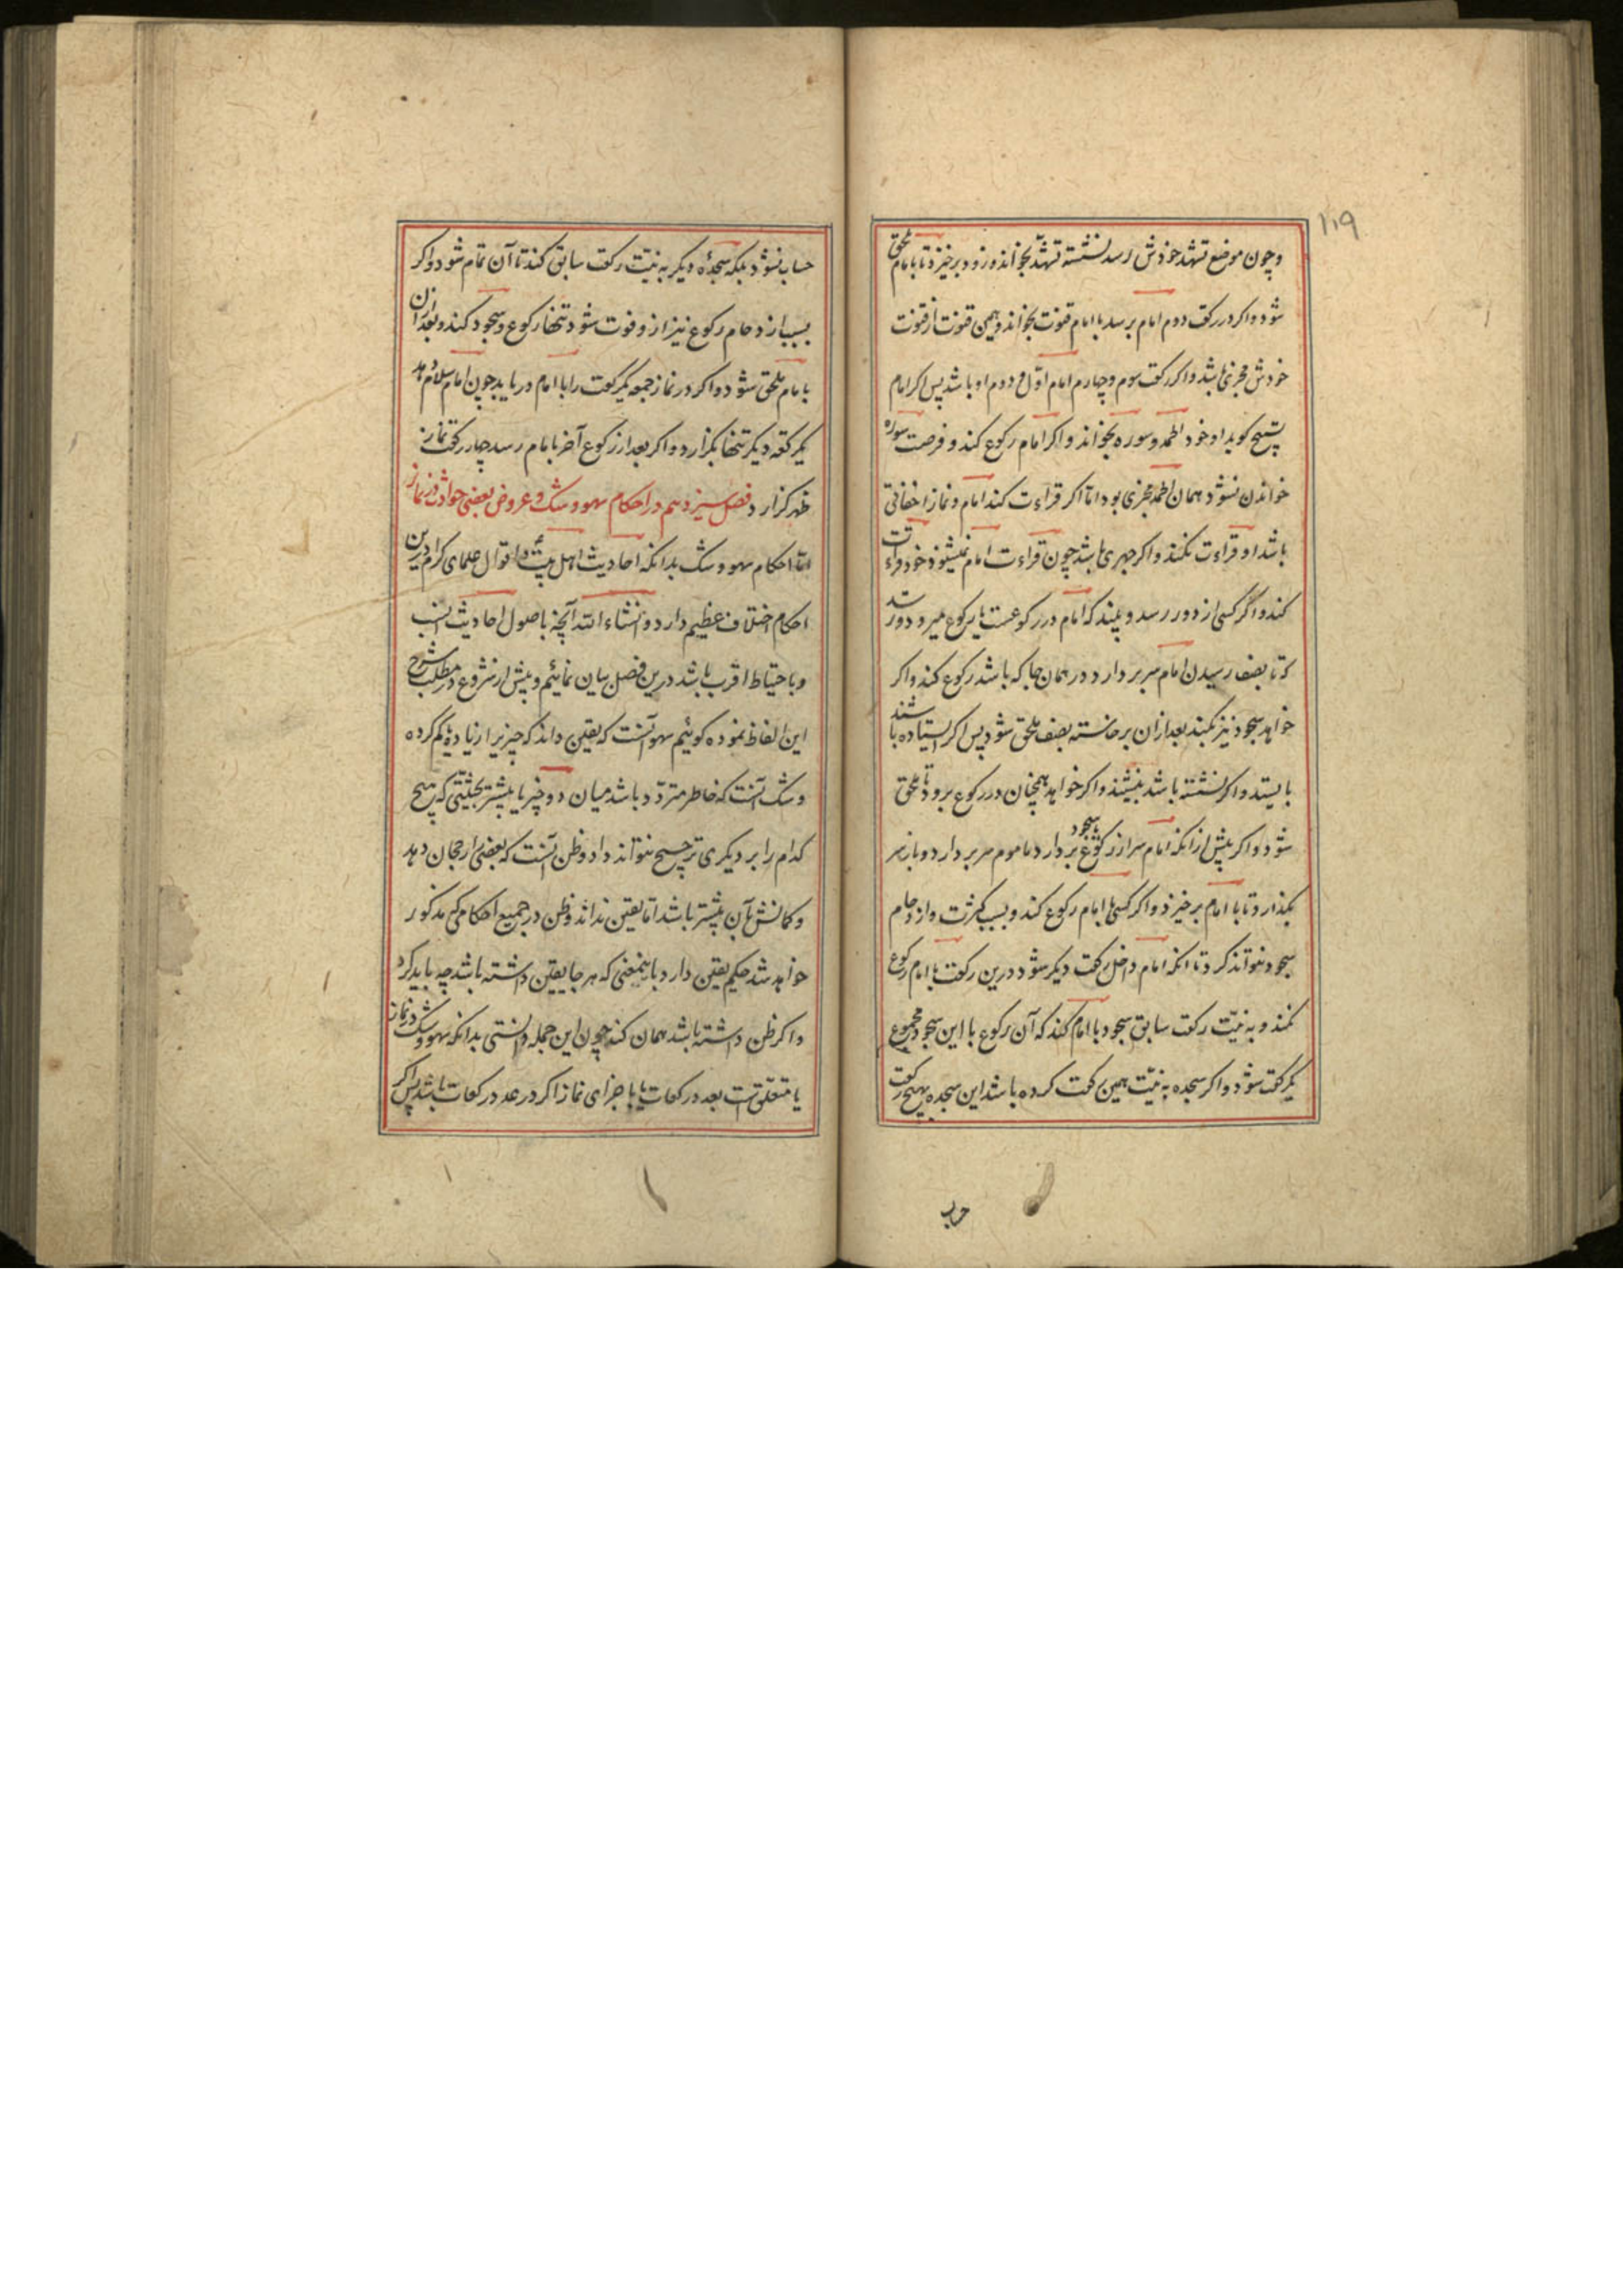 ۱۱۹
و چون موضع تشهد خودش رسد نشسته تشهد بخواند و زود برخیزد تا بامام ملحق
شود و اکر در رکعت دوم امام برسد با امام قنوت بخواند و همین قنوت از قنوت
خودش مجزی باشد و اکر رکعت سوم و چهارم امام اول و دوم او باشد پس اکر امام
تسبیح کوید او خود الحمد و سوره بخواند و اکر امام رکوع کند و فرصت سوره
خواندن نشود همان الحمد مجزی بود اما اکر قراءت کند امام و نماز اخفاتی
باشد او قراءت نکند و اکر جهری باشد چون قراءت امام نمیشنود خود قراءت
کند و اگر کسی از دور رسد و بیند که امام در رکوعست یا برکوع میرود و ترسد
که تا بصف رسیدن امام سر بردارد در همان جا که باشد رکوع کند و اکر
خواهد سجود نیز بکند بعد ازان برخاسته بصف ملحق شود پس اکر ایستاده باشند
بایستد و اکر نشسته باشد بنشیند و اکر خواهد همچنان در رکوع برود تا ملحق
شود و اکر پیش از انکه امام سر از رکوع یا سجود بردارد ماموم سر بردارد و باز سر
بکذارد تا با امام برخیزد و اکر کسی با امام رکوع کند و بسبب کثرت و ازدحام
سجود نتواند کرد تا انکه امام داخل رکعت دیکر شود درین رکعت با امام رکوع
نکند و به نیت رکعت سابق سجود با امام کند که آن رکوع با این سجود مجموع
یکرکعت شود و اکر سجده به نیت همین رکعت کرده باشد این سجده بهیچ رکعت
حساب
حساب نشود بلکه سجدهٔ دیکر به نیت رکعت سابق کند تا آن تمام شود و اکر
بسبب ازدحام رکوع نیز از و فوت شود تنها رکوع و سجود کند و بعد ازان
با امام ملحق شود و اکر در نماز جمعه یکرکعت را با امام دریابد چون امام سلام دهد
یکرکعه دیکر تنها بکزارد و اکر بعد از رکوع آخر با امام رسد چهار رکعت نماز
ظهر کزارد فصل سیزدهم در احکام سهو و شک و عروض بعضی حوادث در نماز
اما احکام سهو و شک بدانکه احادیث اهل بیت و اقوال علمای کرام درین
احکام اختلاف عظیم دارد و انشاء الله آنچه باصول احادیث انسب
و باحتیاط اقرب باشد درین فصل بیان نمائیم و پیش از شروع در مطلب شرح
این الفاظ نموده کوئیم سهو آنست که یقین داند که چیزیرا زیاده یا کم کرده
و شک آنست که خاطر متردد باشد میان دو چیز یا بیشتر بحیثیتی که هیچ
کدام را بر دیکری ترجیح نتواند داد و ظن آنست که بعضی را رجحان دهد
و کمانش بآن بیشتر باشد اما یقین نداند و ظن در جمیع احکام که مذکور
خواهد شد حکم یقین دارد باینمعنی که هر جا یقین داشته باشد چه باید کرد
و اکر ظن داشته باشد همان کند چون این جمله دانستی بدانکه سهو و شک در نماز
یا متعلق است بعدد رکعات یا باجزای نماز اکر در عدد رکعات باشد پس اکر